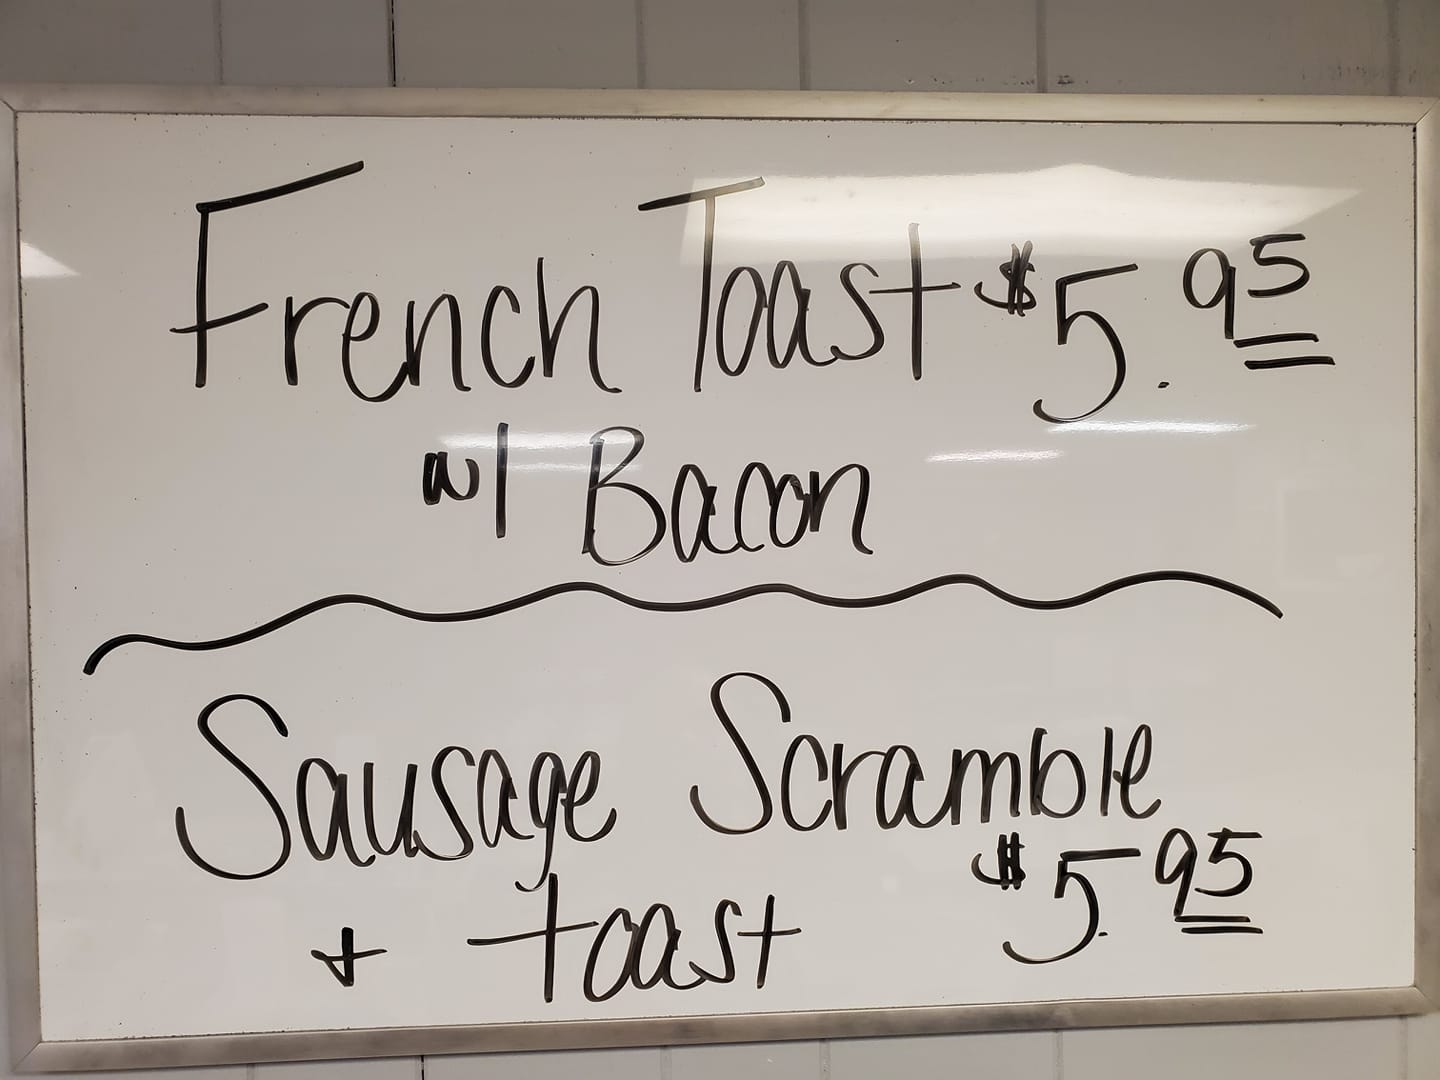 French Toast $5.95
w/ Bacon
Sausage Scramble
+ toast $5.95